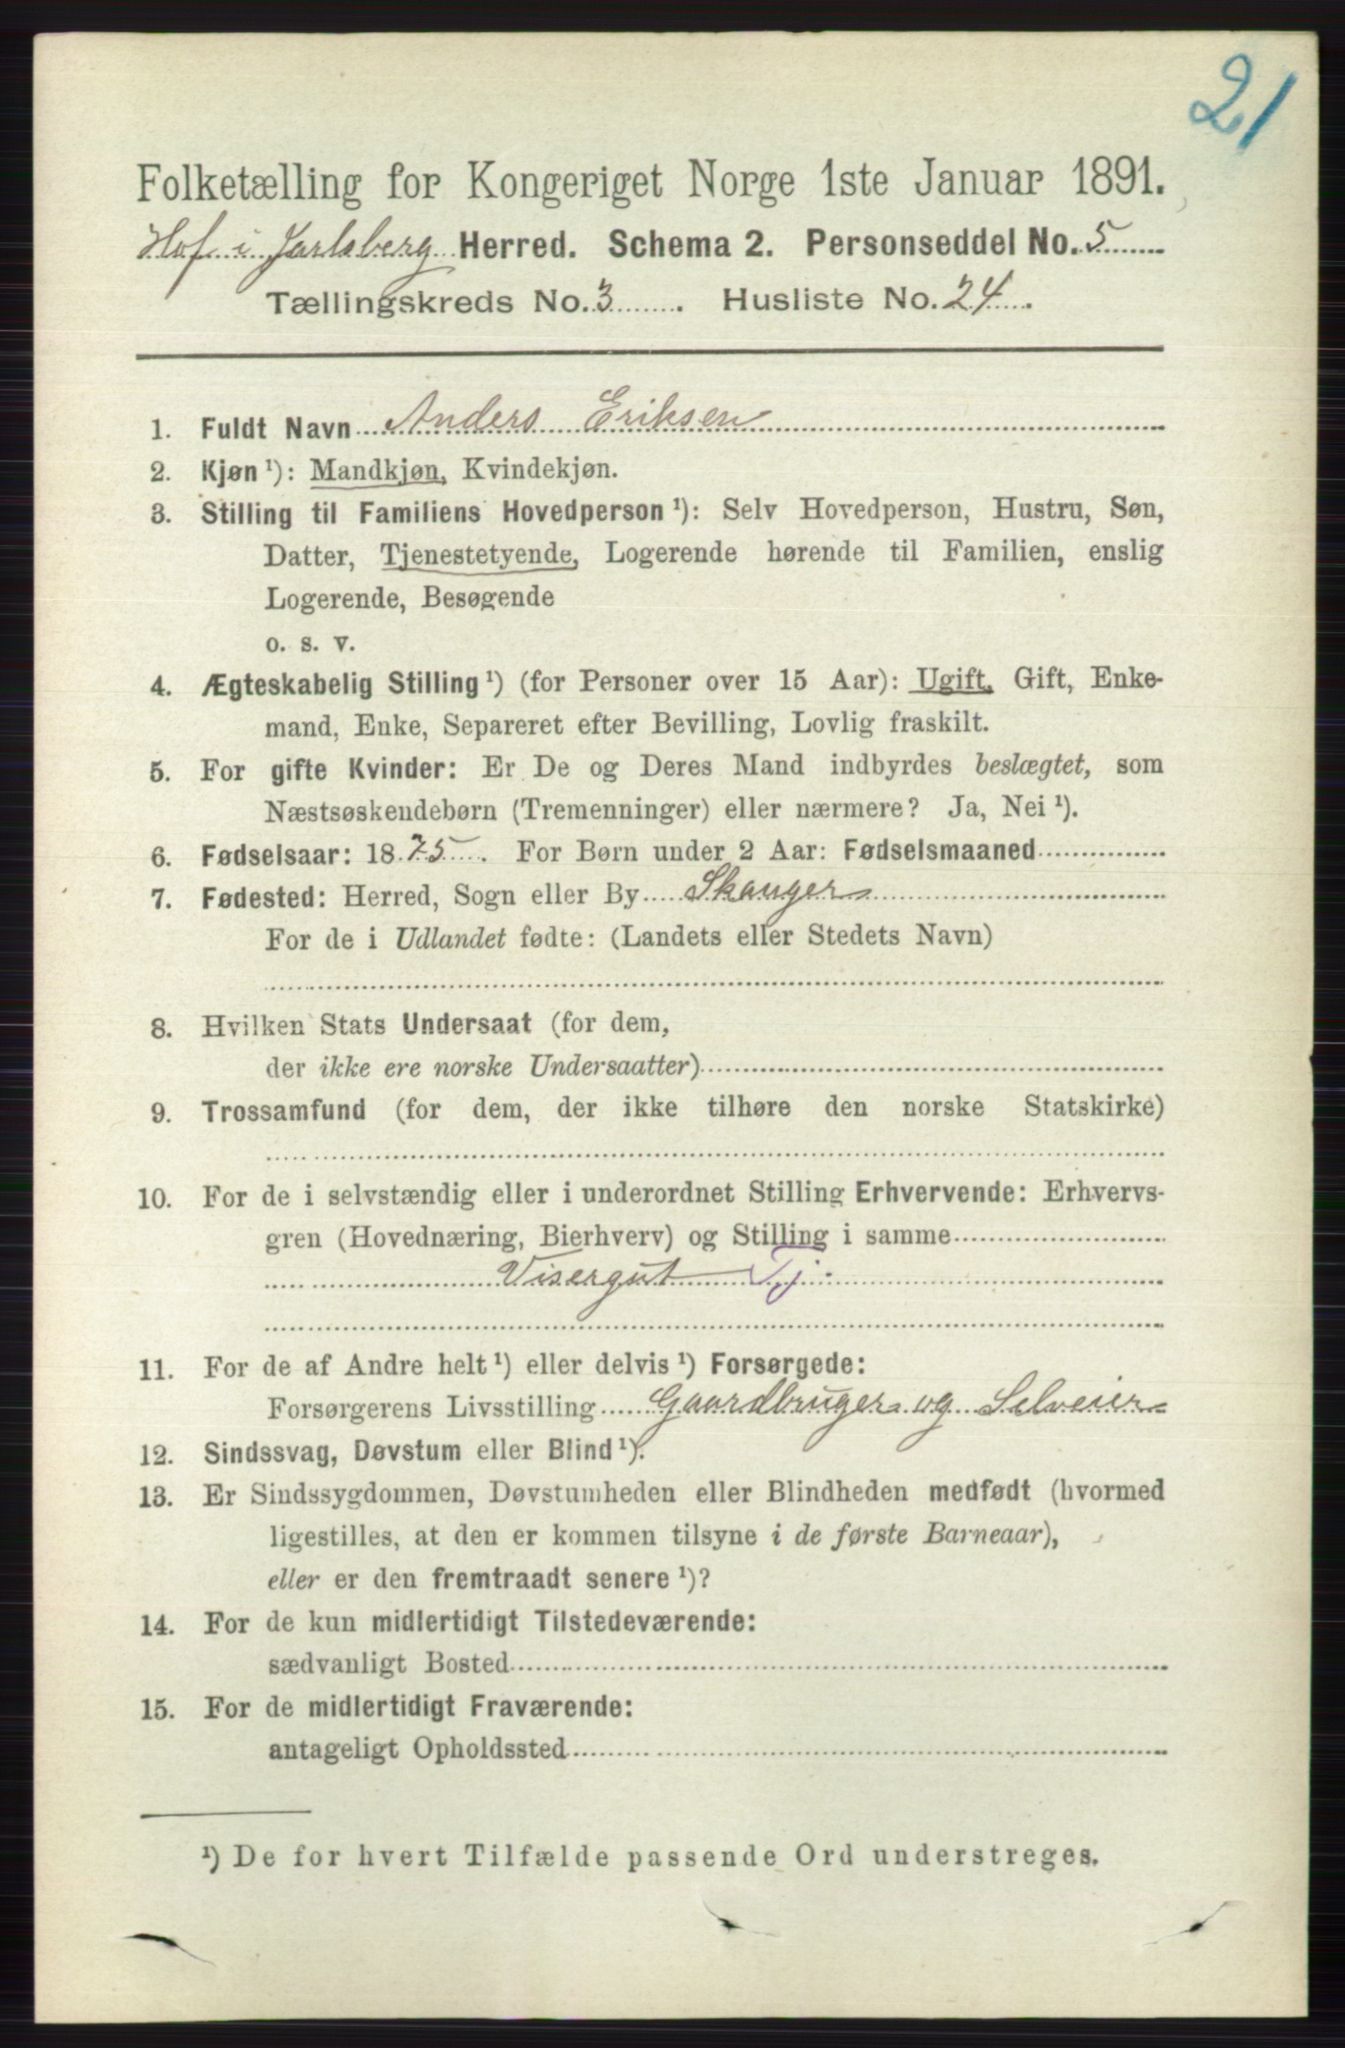 21
Folketælling for Kongeriget Norge 1ste Januar 1891.
Hof i Jarlsberg Herred. Schema 2. Personseddel No. 5
Tællingskreds No. 3. Husliste No. 24.
1. Fuldt Navn Anders Eriksen
2. Kjøn¹): Mandkjøn, Kvindekjøn.
3. Stilling til Familiens Hovedperson¹): Selv Hovedperson, Hustru, Søn,
Datter, Tjenestetyende, Logerende hørende til Familien, enslig
Logerende, Besøgende
o. s. v.
4. Ægteskabelig Stilling¹) (for Personer over 15 Aar): Ugift, Gift, Enke-
mand, Enke, Separeret efter Bevilling, Lovlig fraskilt.
5. For gifte Kvinder: Er De og Deres Mand indbyrdes beslægtet, som
Næstsøskendebørn (Tremenninger) eller nærmere? Ja, Nei¹).
6. Fødselsaar: 1875. For Børn under 2 Aar: Fødselsmaaned
7. Fødested: Herred, Sogn eller By Skauger
For de i Udlandet fødte: (Landets eller Stedets Navn)
8. Hvilken Stats Undersaat (for dem,
der ikke ere norske Undersaatter)
9. Trossamfund (for dem, der ikke tilhøre den norske Statskirke)
10. For de i selvstændig eller i underordnet Stilling Erhvervende: Erhvervs-
gren (Hovednæring, Bierhverv) og Stilling i samme
Visergut Tj.
11. For de af Andre helt¹) eller delvis¹) Forsørgede:
Forsørgerens Livsstilling Gaardbruger og Selveier
12. Sindssvag, Døvstum eller Blind¹).
13. Er Sindssygdommen, Døvstumheden eller Blindheden medfødt (hvormed
ligestilles, at den er kommen tilsyne i de første Barneaar),
eller er den fremtraadt senere¹)?
14. For de kun midlertidigt Tilstedeværende:
sædvanligt Bosted
15. For de midlertidigt Fraværende:
antageligt Opholdssted
¹) De for hvert Tilfælde passende Ord understreges.